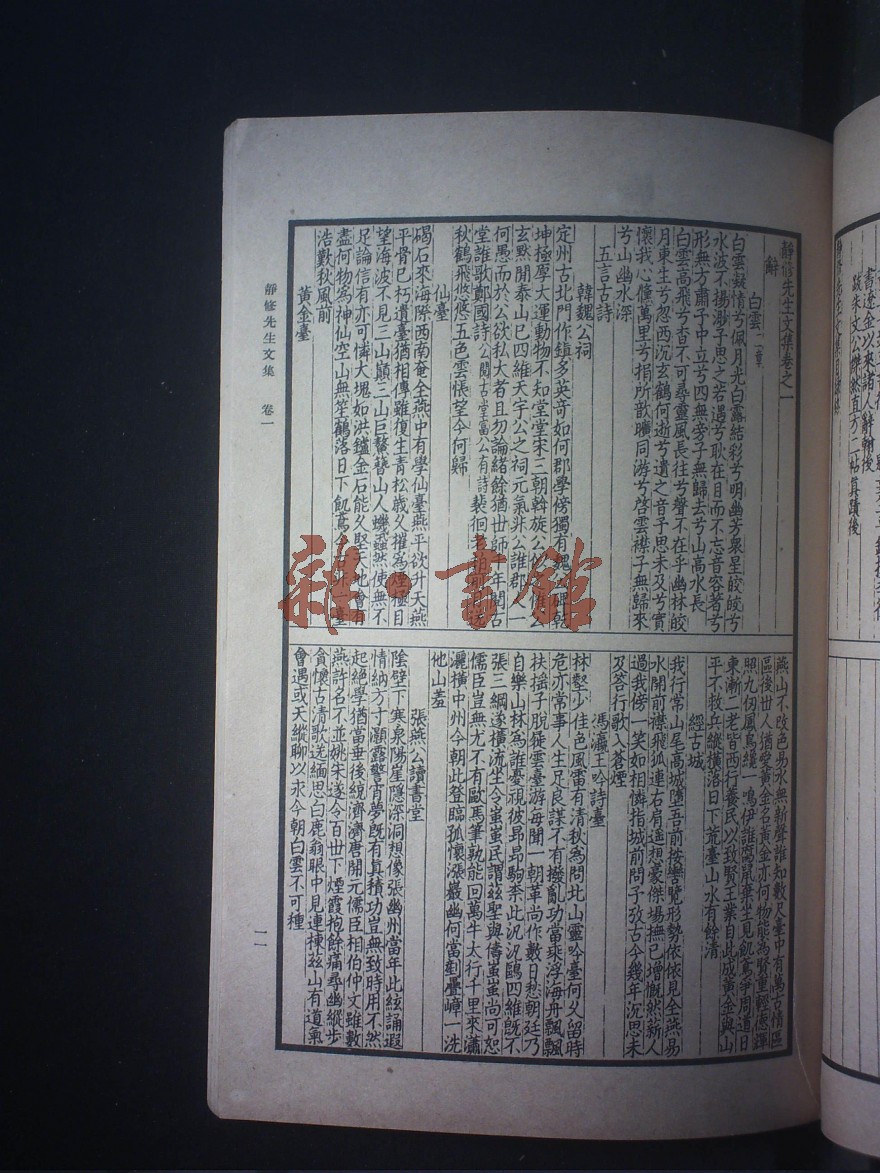 靜修先生文集卷之一
辭
白雲二章
白雲凝情兮佩月光白露結彩兮明幽芳衆星皎皎兮
水波不揚渺子思之若遇兮耿在目而不忘音容著兮
形無方肅子中立兮四無旁子無歸去兮山高水長
白雲高飛兮杳不可尋靈風長往兮聲不在乎幽林皎
月東生兮忽西沉玄鶴何逝兮遺之音子思未及兮實
懷我心儵萬里兮捐所歆曠同游兮啓雲襟子無歸來
兮山幽水深
五言古詩
韓魏公祠
定州古北門作鎮多英奇如何郡學傍獨有魏
坤極厚大運動物不知堂堂宋三朝斡旋公
玄默開泰山已四維天宇公之祠元氣非公誰郡人一
何愚而於公欲私大者且勿論緒餘猶世師
堂誰歌鄭國詩公閱古堂富公有詩裴徊
秋鶴飛悠悠五色雲悵望今何歸
仙臺
碣石來海際西南奄全燕中有學仙臺燕平欲升天燕
平骨已朽遺臺猶相傳雖復生青松歲久摧為煙極目
望海波不見三山巔三山巨鰲簪山人蟣蝨然使無不
足論信有亦可憐大塊如洪鑪金石能久堅
盡何物為神仙空山無笙鶴落日下飢鳶
浩歎秋風前
黃金臺
燕山不改色易水無新聲誰知數尺臺中有萬古情區
區後世人猶愛黃金名黃金亦何物能為賢重輕德輝
照九仞鳳鳥纔一鳴伊誰腐鼠棄坐見飢鳶爭周道日
東漸二老皆西行養民以致賢王業自此成黃金與山
平不救兵縱橫落日下荒臺山水有餘清
經古城
我行常山尾高城墮吾前按轡覽形勢依依見全燕易
水開前襟飛狐連右肩遙想豪傑場撫已增慨然新人
過我傍一笑如相憐指城前問子攷古今幾年沉思未
及答行歌入蒼煙
馮瀛王吟詩臺
林壑少佳色風雷有清秋為問北山靈吟臺何久留時
危亦常事人生足良謀不有撥亂功當乘浮海舟飄飄
扶搖子脫屣雲臺游每聞一朝革尚作數日愁朝廷乃
自樂山林為誰憂視彼昂昂駒柰此汎汎鷗四維既不
張三綱遂橫流坐令蚩蚩民謂茲聖與儔蚩蚩尚可恕
儒臣豈無尤不有歐馬筆孰能回萬牛太行千里來瀟
灑橫中州今朝此登臨孤懷漲巖幽何當剷疊嶂一洗
他山羞
張燕公讀書堂
陰壁下寒泉陽崖隱深洞想像張幽州當年此絃誦遐
情納方寸灝露警宵夢既有真積功豈無致時用不然
起絕學猶當垂後統濟濟唐開元儒臣相伯仲文雖數
燕許名不並姚宋遂令百世下煙霞抱餘痛尋幽縱步
貪懷古清歌送緬思白鹿翁眼中見連棟茲山有道氣
會遇或天縱聊以永今朝白雲不可種
靜修先生文集 卷一
一一
雜·書館
書遼金以來諸人辭翰後
跋朱文公傑然直方二帖真蹟後